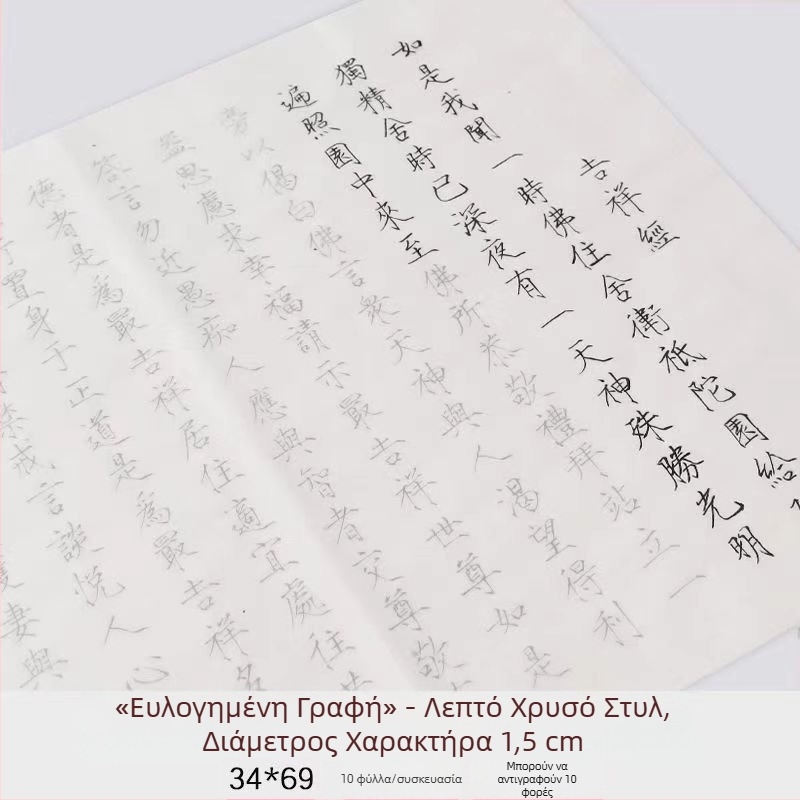 吉祥經
如是我聞一時佛住舍衛祇陀園給
獨精舍時已深夜有一天神殊勝光明
遍照園中來至佛所恭敬禮拜站立一
旁以偈白佛言眾天神與人渴望得利
益思慮求幸福請示最吉祥世尊如是
答言勿近愚痴人應與智者交尊敬
德者是爲最吉祥居住適宜處往
置身于正道是爲最吉祥多
戒言談悅人心
妻與
«Ευλογημένη Γραφή» - Λεπτό Χρυσό Στυλ,
Διάμετρος Χαρακτήρα 1,5 cm
34*69
10 φύλλα/συσκευασία
Μπορούν να
αντιγραφούν 10
φορές